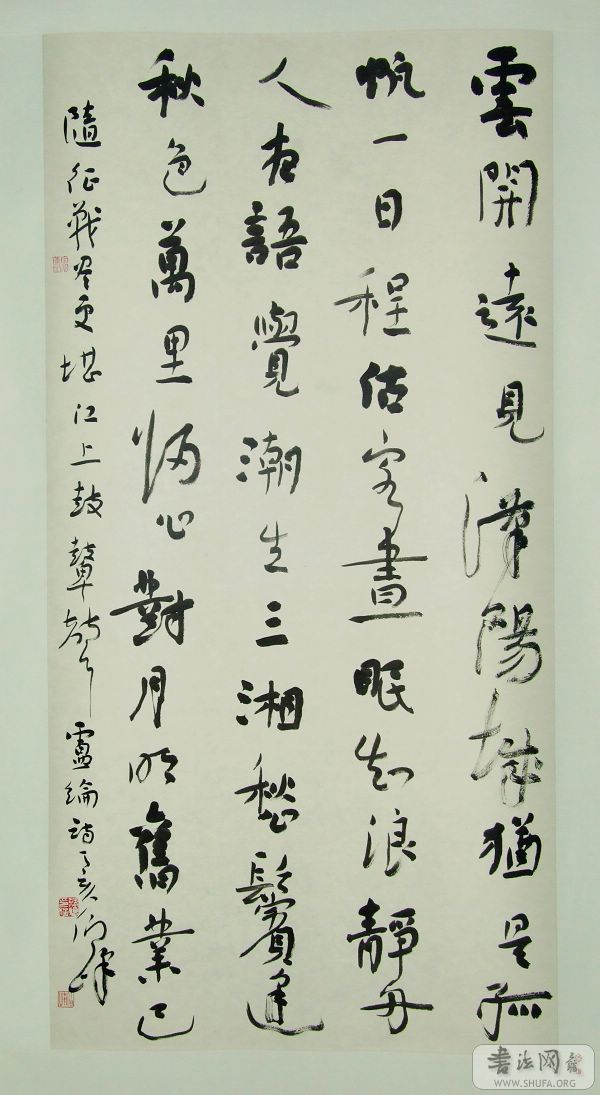 雲開遠見漢陽城猶是孤
帆一日程估客晝眠知浪靜舟
人夜語覺潮生三湘愁鬢逢
秋色萬里歸心對月明舊業已
隨征戰尽更堪江上鼓鼙聲 盧綸詩丁亥
書法网
WWW.SHUFA.ORG